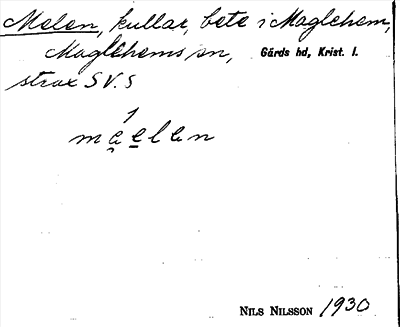 Melen, kullar, bete i Maglehem,
Maglehems sn, Gärds hd, Krist. l.
strax SV. S
1
mæ̣e̠len
NILS NILSSON 1930